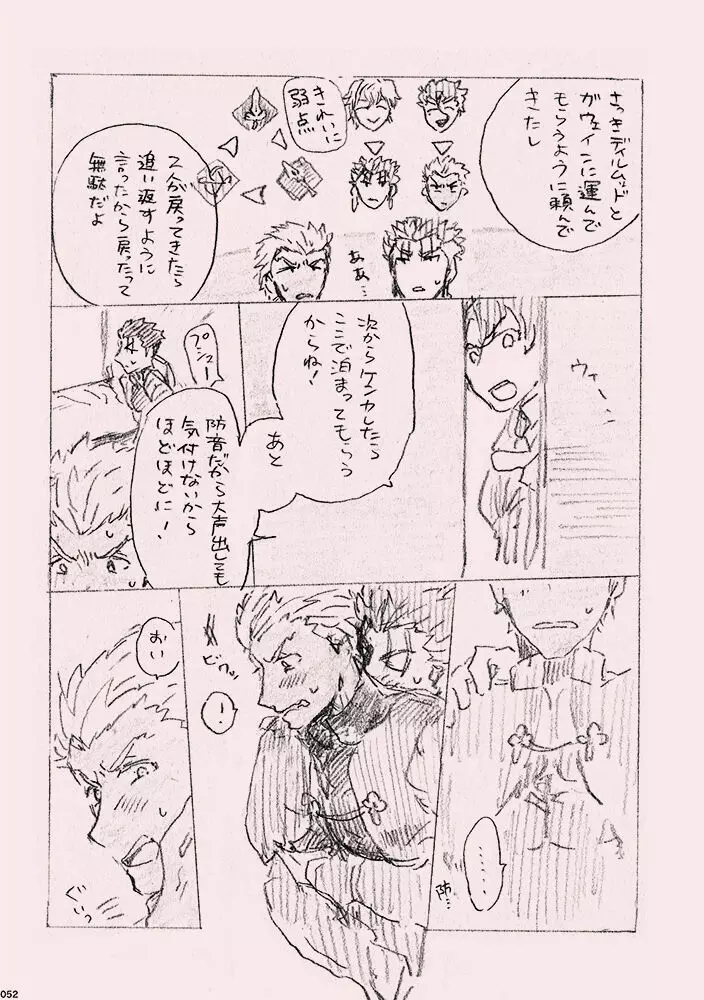 さっきディルムッドと
ガウェインに運んで
もらうように頼んで
きたし
きれいに
弱点
ああ…
2人が戻ってきたら
追い返すように
言ったから戻ったって
無駄だよ
ウィーン
次からケンカしたら
ここで泊まってもらう
からね!
あと
防音だから大声出しても
気付けないから
ほどほどに!
プシュー
………
防…
ビクッ
!
おい
ぐいっ
052